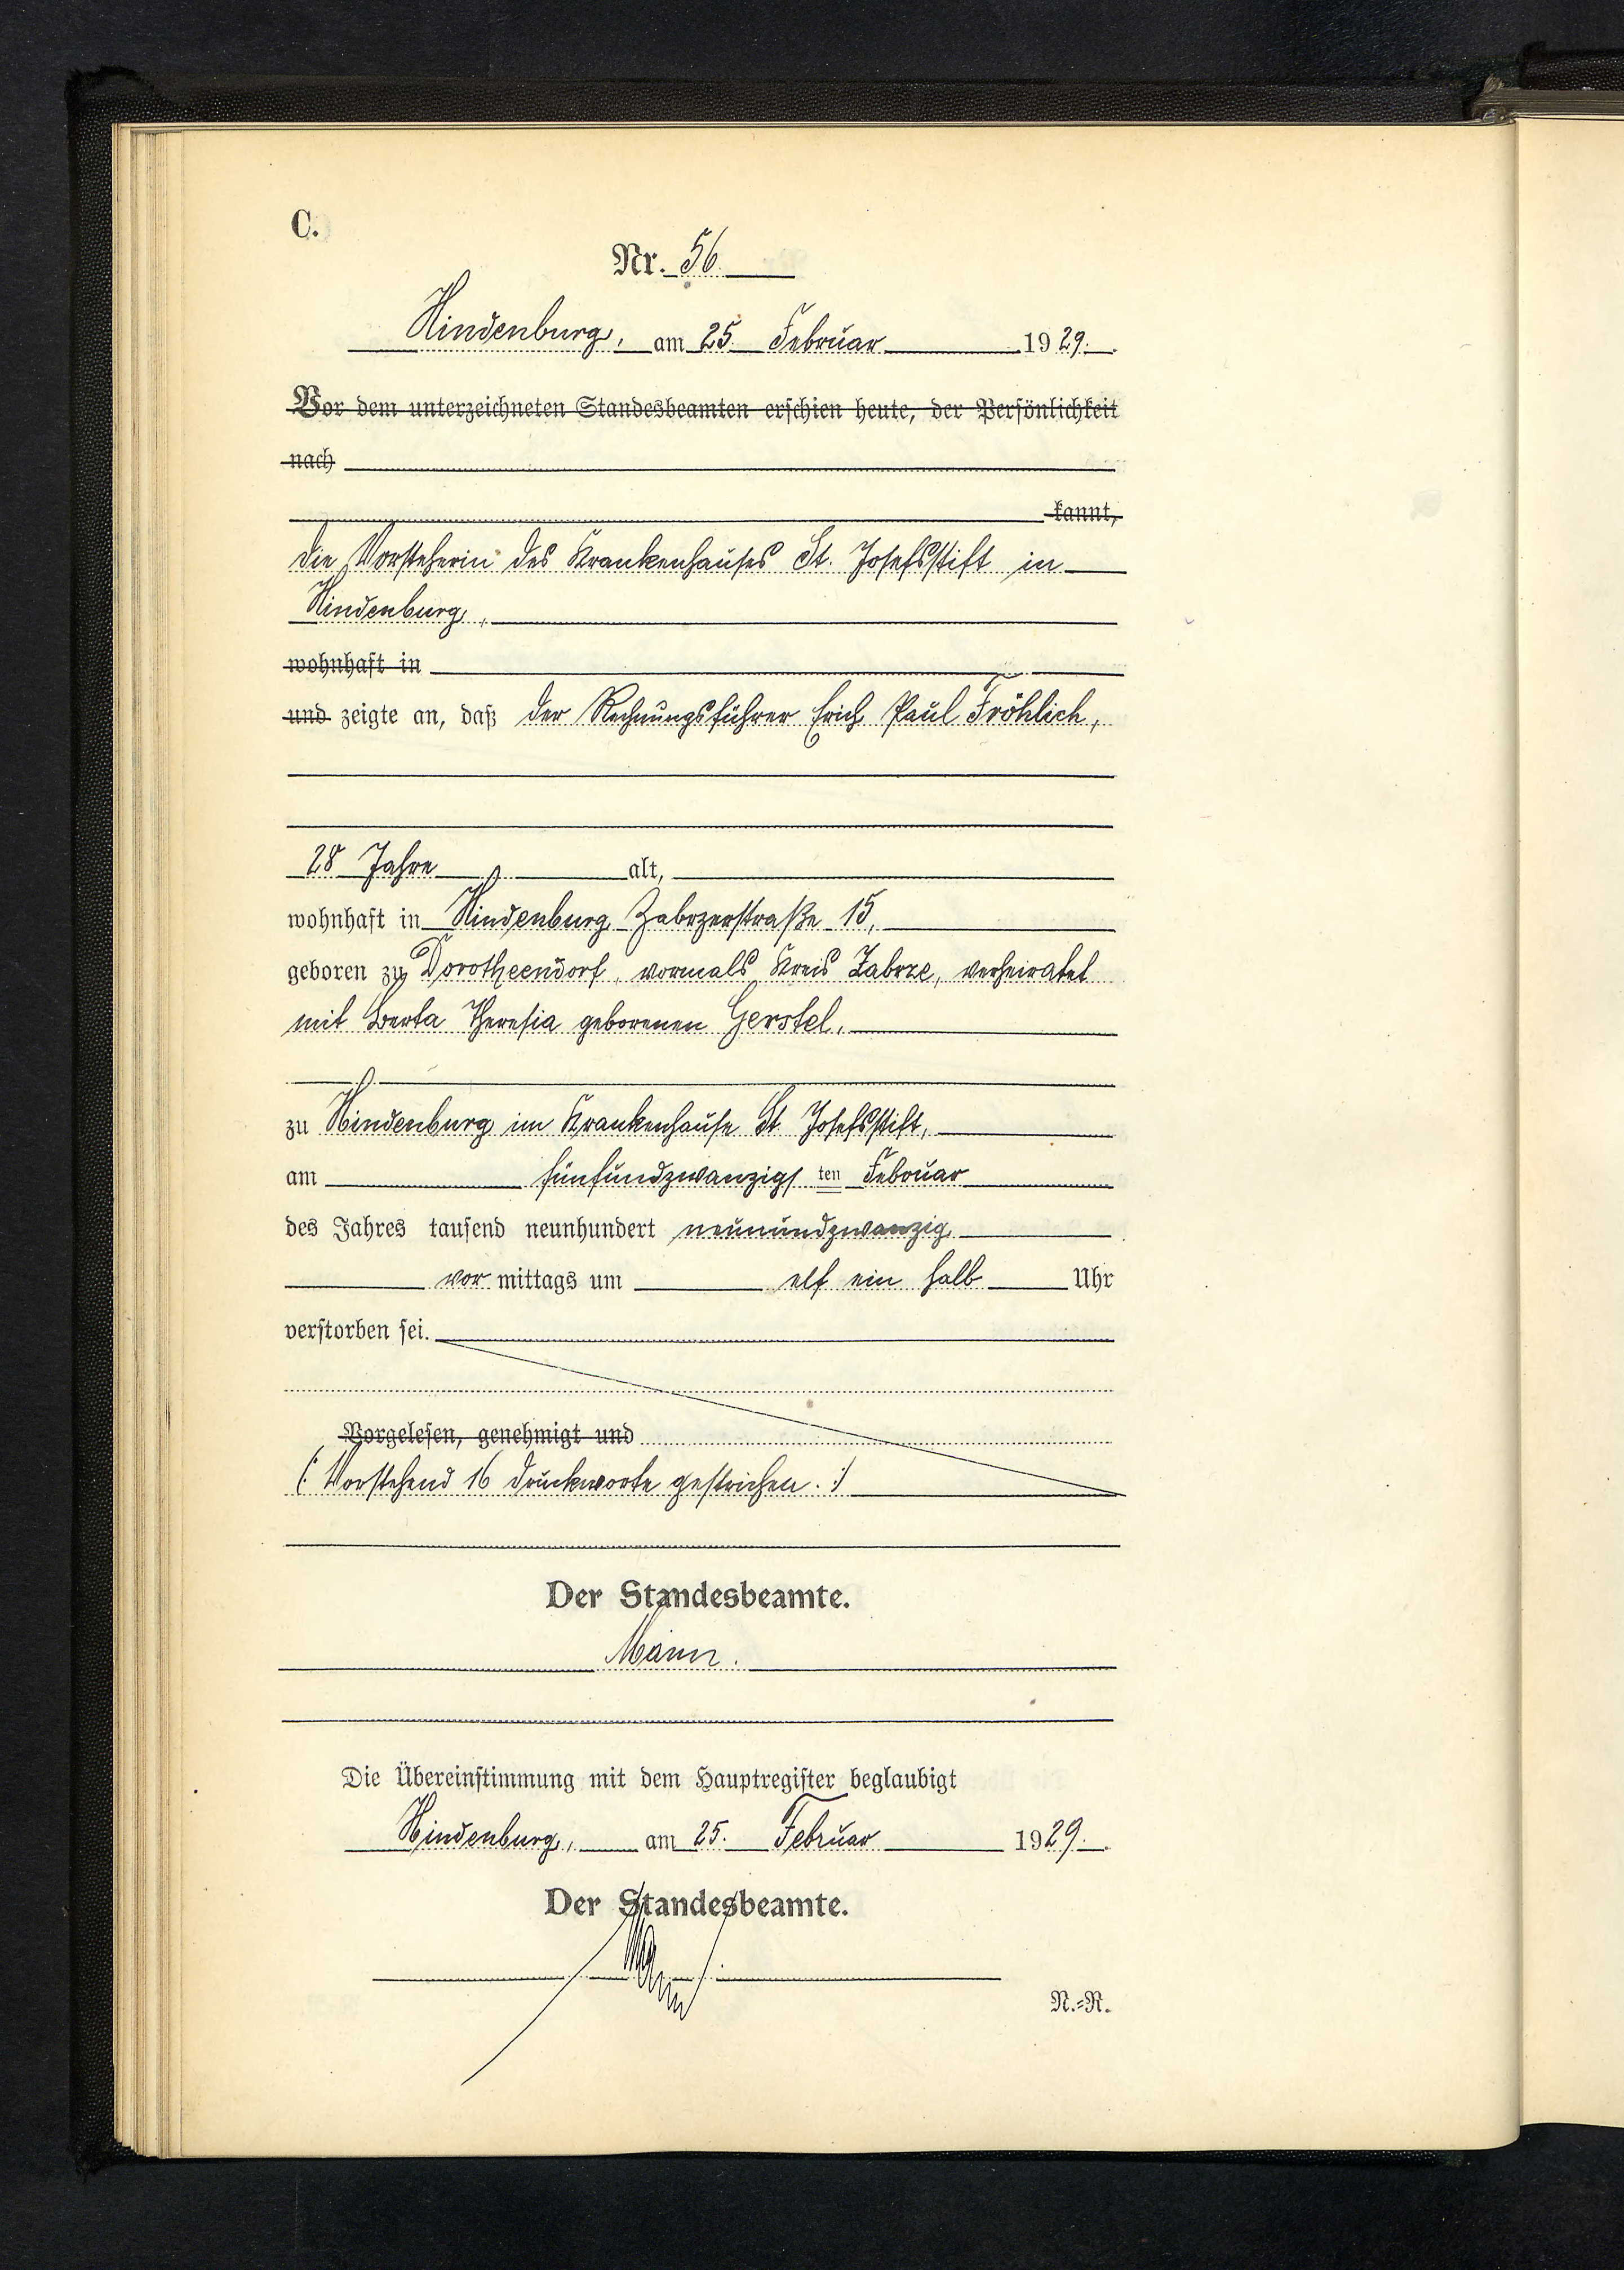 C.
Nr. 56.
Hindenburg, am 25. Februar 1929.
Vor dem unterzeichneten Standesbeamten erschien heute, der Persönlichkeit
nach
kannt,
die Vorsteherin des Krankenhauses St. Josefsstift in
Hindenburg,
wohnhaft in
und zeigte an, daß der Rechnungsführer Erich Paul Fröhlich,
28 Jahre alt,
wohnhaft in Hindenburg, Zabrzerstraße 15,
geboren zu Dorotheendorf, vormals Kreis Zabrze, verheiratet
mit Berta Theresia geborenen Gerstel,
zu Hindenburg im Krankenhause St. Josefsstift,
am fünfundzwanzigsten Februar
des Jahres tausend neunhundert neunundzwanzig
vormittags um elf ein halb Uhr
verstorben sei.
Vorgelesen, genehmigt und
(: Vorstehend 16 Druckworte gestrichen. :)
Der Standesbeamte.
Mann.
Die Übereinstimmung mit dem Hauptregister beglaubigt
Hindenburg, am 25. Februar 1929.
Der Standesbeamte.
N.=R.